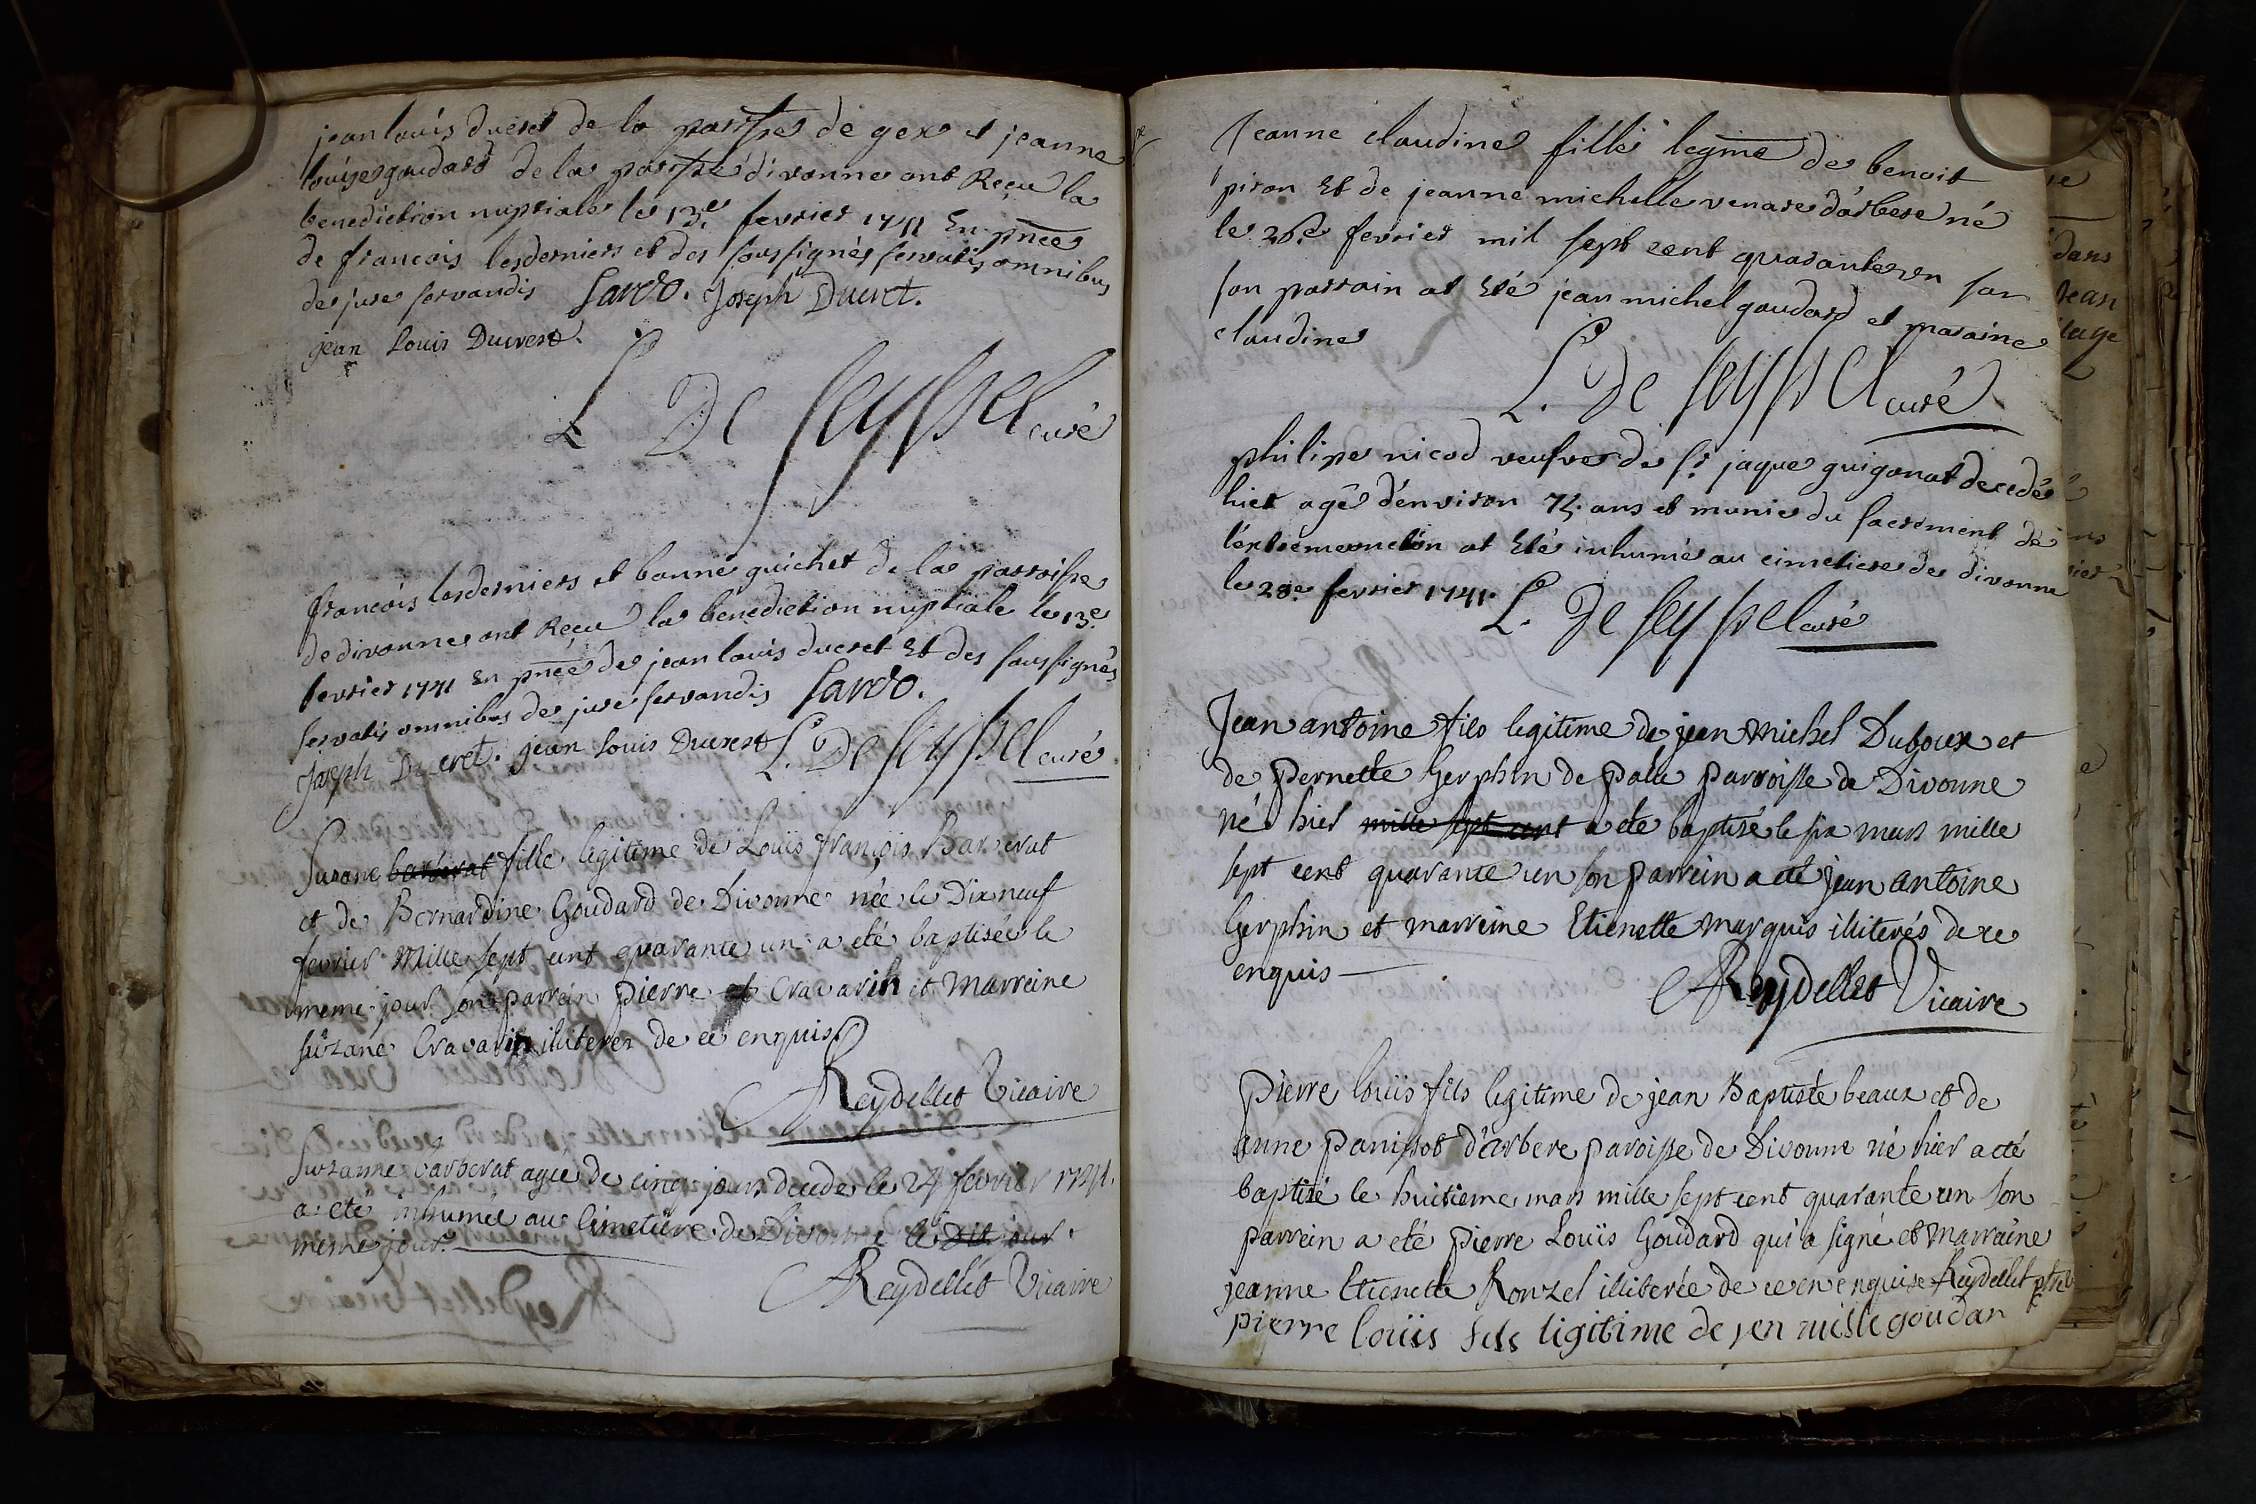 jean louis ducret de la parsse de gex et jeanne
louise goudard de la parsse divonne ont Reçu la
benediction nuptiale le 13e fevrier 1741 En pñce
de francois lesderniers et des soussignés servatis omnibus
de jure servandis Jarco. Joseph Ducret.
jean Louis Ducrest.
L. De Seyssel curé
francois lesderniers et bonne guichet de la parroisse
de divonne ont Reçu la benediction nuptiale le 13e
fevrier 1741 En pñce de jean louis ducret Et des soussignés
servatis omnibus de jure servandis Jarco.
Joseph Ducret. jean Louis Ducrest L. De Seyssel curé
Suzane barberat fille legitime de Louis françois Barberat
et de Bernardine Goudard de Divonne née le Dixneuf
fevrier Mille sept cent quarante un a eté baptisée le
meme jour son parrein pierre et Cravarin et Marreine
suzane Cravarin illiterés de ce enquis
Reydellet Vicaire
Suzanne barberat agee de cinq jours decedee le 24 fevrier 1741.
a eté inhumée au Cimetiere de Divonne le dit jour
meme jour.
Reydellet Vicaire
Jeanne claudine fille legime de benoit
piron Et de jeanne michelle venare d'arbere né
le 26e fevrier mil sept cent quarante en son
son parrain at Eté jean michel goudard et maraine
claudine
L. De Seyssel curé
philipe nicod veufve de sr jaque guigonat decedée
hier agée d'environ 75. ans et munie du sacrement de
l'extremeonction at Eté inhumée au cimetiere de divonne
le 28e fevrier 1741. L. De Seyssel curé
Jean antoine fils legitime de jean Michel Duboux et
de Pernette Gerphin de palu parroisse de Divonne
né hier mille sept cent a eté baptisé le six mars mille
sept cent quarante un son parrein a eté jean antoine
Gerphin et marreine Etienette Marquis illiterés de ce
enquis
Reydellet Vicaire
Pierre louis fils legitime de jean Baptiste beaux et de
anne panissot d'arbere paroisse de Divonne né hier a eté
baptisé le huitieme mars mille sept cent quarante un son
parrein a eté Pierre Louis Goudard qui a signé et Marraine
jeanne Etienette Ronzel illiterée de ce en enquise Reydellet ptre v
pierre louiis fils ligitime de jen misle goudar